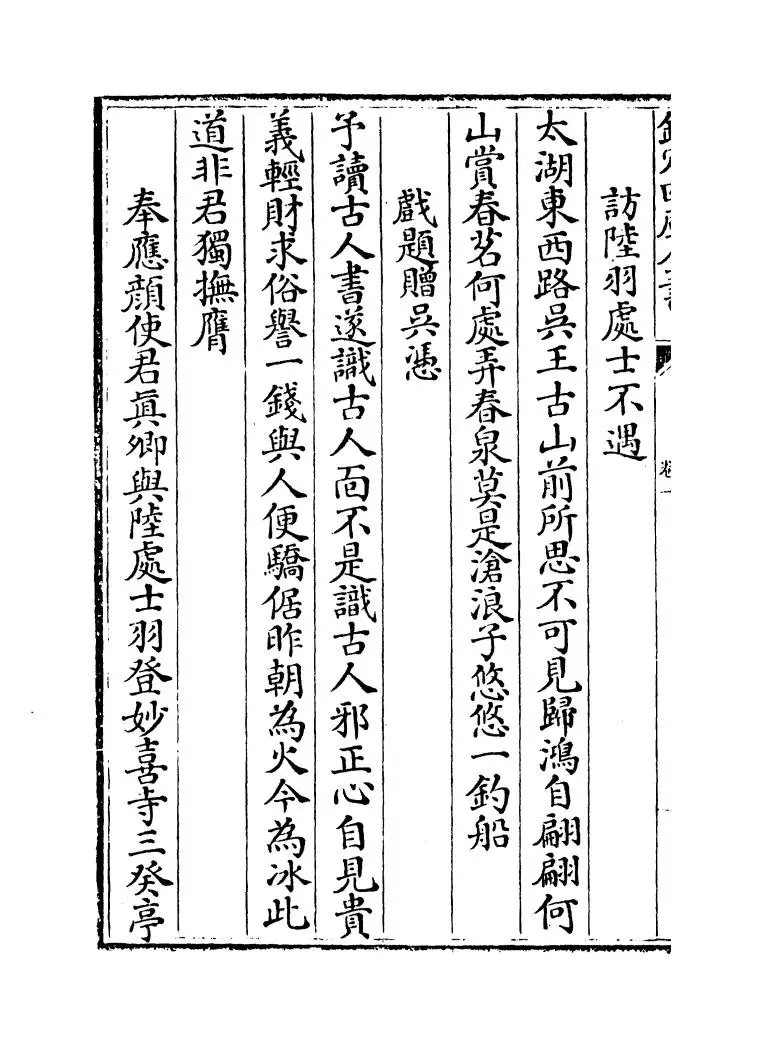 欽定四庫全書
卷一
訪陸羽處士不遇
太湖東西路吳王古山前所思不可見歸鴻自翩翩何
山賞春茗何處弄春泉莫是滄浪子悠悠一釣船
戲題贈吳憑
予讀古人書遂識古人面不是識古人邪正心自見貴
義輕財求俗譽一錢與人便驕倨昨朝為火今為冰此
道非君獨撫膺
奉應顏使君真卿與陸處士羽登妙喜寺三癸亭